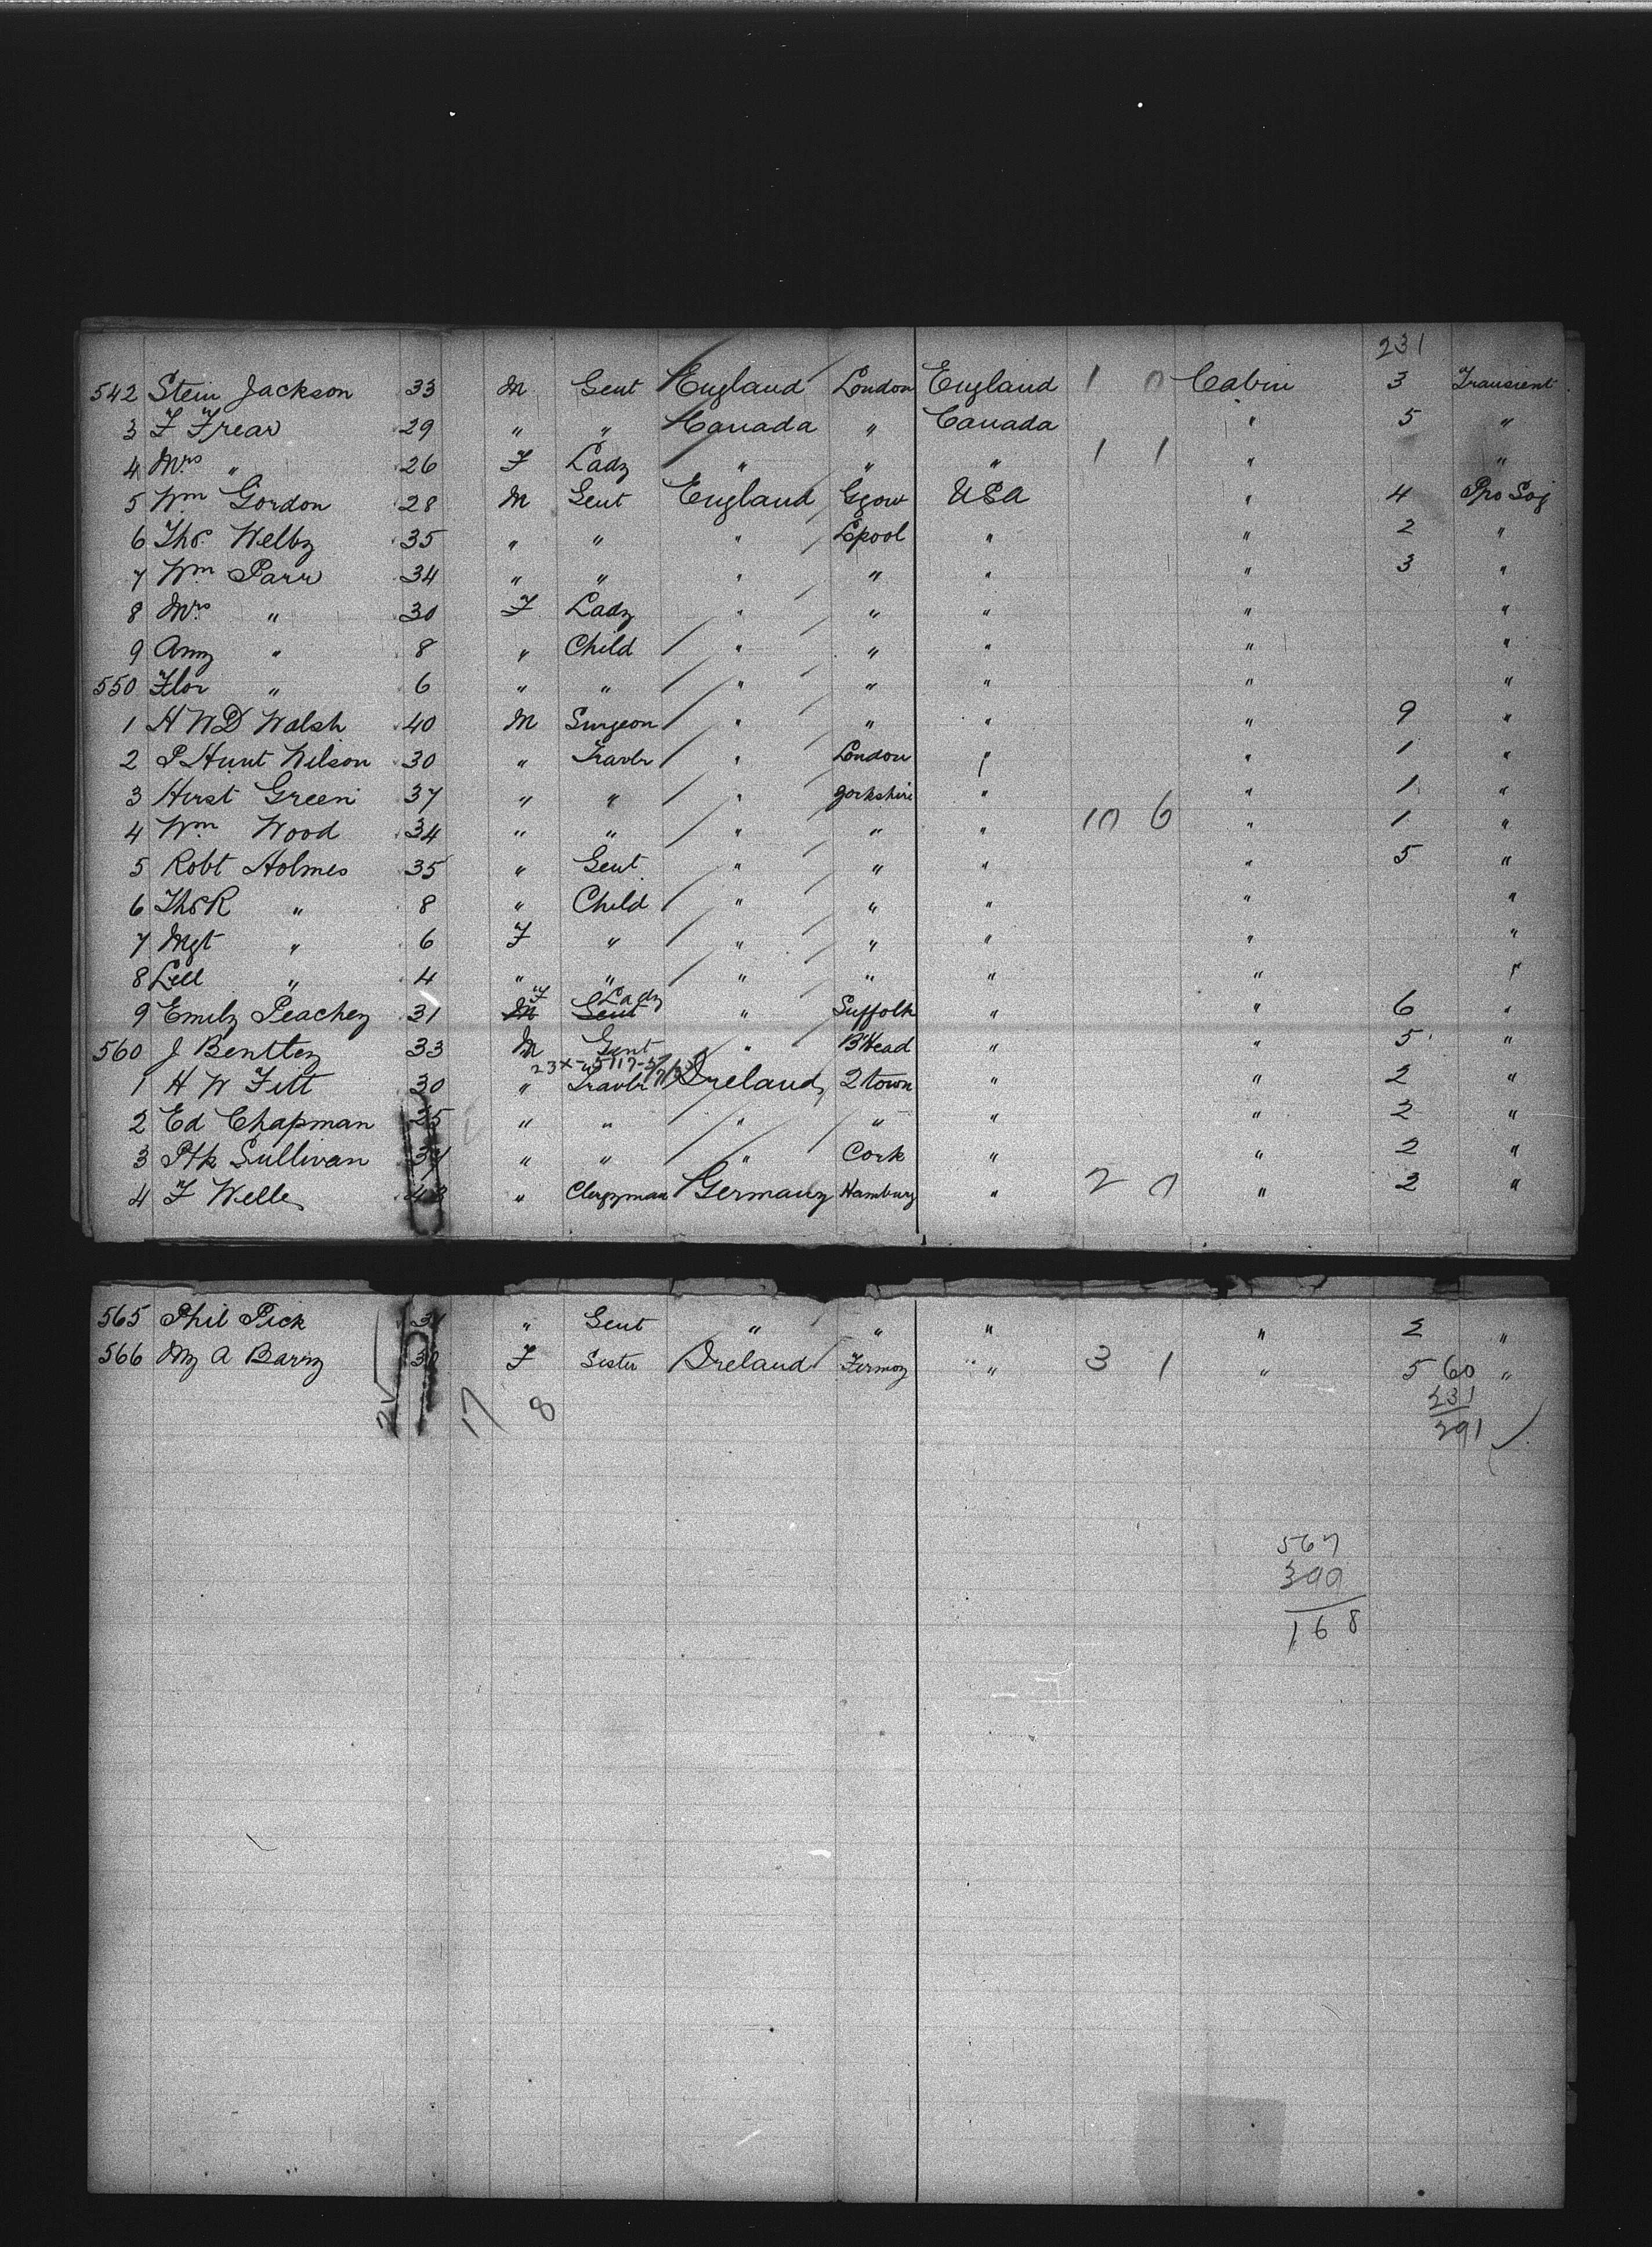 231
542 Stein Jackson 33 M Gent England London England 1 0 Cabin 3 Transient
3 F Frear 29 " " Canada " Canada " 5 "
4 Mrs " 26 F Lady " " " 1 1 " "
5 Wm Gordon 28 M Gent England Ggow USA " 4 Pro Soj
6 Thos. Welby 35 " " " Lpool " " 2 "
7 Wm Parr 34 " " " " " " 3 "
8 Mrs " 30 F Lady " " " " "
9 Amy " 8 " Child " " " " "
550 Flor " 6 " " " " " " "
1 H W D Walsh 40 M Surgeon " " " " 9 "
2 P Hunt Wilson 30 " Travlr " London " " 1 "
3 Hirst Green 37 " " " Yorkshire " " 1 "
4 Wm Wood 34 " " " " " 10 6 " 1 "
5 Robt Holmes 35 " Gent " " " " 5 "
6 Thos R " 8 " Child " " " " "
7 Mgt " 6 F " " " " " "
8 Lell " 4 " " " " " " "
F Lady
9 Emily Peachey 31 M Gent " Suffolk " " 6 "
560 J Bentley 33 M Gent " B'Head " " 5 "
1 H W Fitt 30 " Travlr Ireland Qtown " " 2 "
2 Ed Chapman 25 " " " " " " 2 "
3 Ptk Sullivan 34 " " " Cork " " 2 "
4 F Welle " Clergyman Germany Hamburg " 2 0 " 2 "
565 Phil Pick 31 " Gent " " " " 2 "
566 My A Barry 30 F Sister Ireland Fermoy " 3 1 " 5 60 "
17 8 231
291
567
399
168